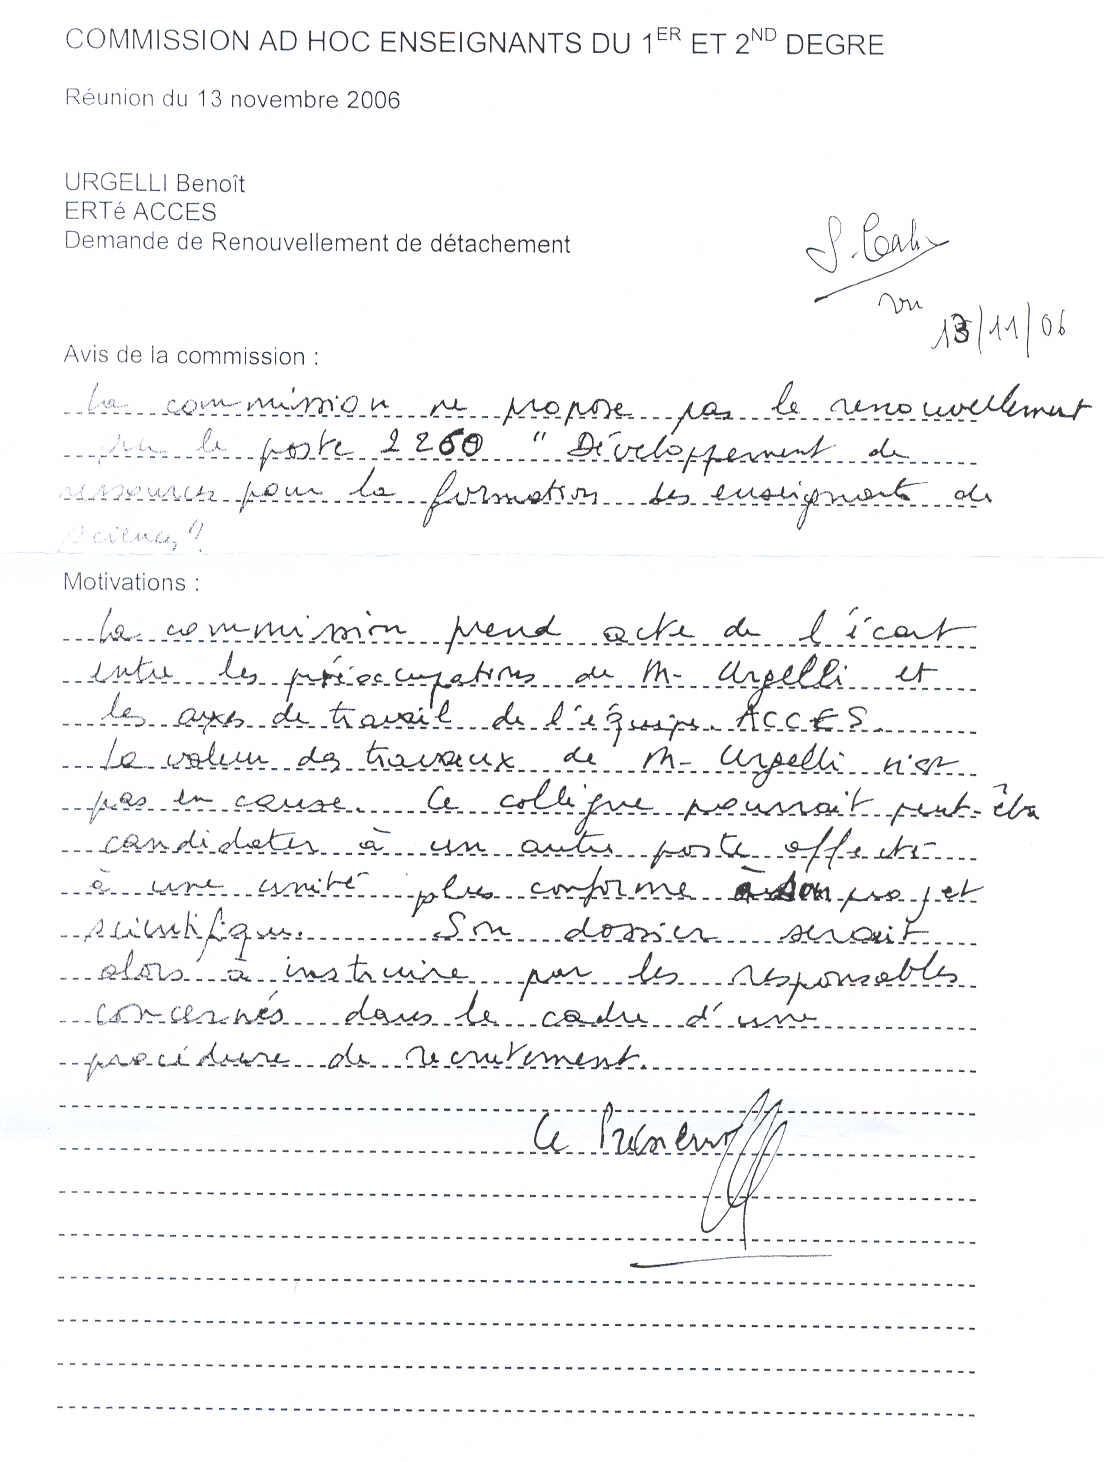 COMMISSION AD HOC ENSEIGNANTS DU 1ER ET 2ND DEGRE
Réunion du 13 novembre 2006
URGELLI Benoît
ERTé ACCES
Demande de Renouvellement de détachement
vu
13/11/06
Avis de la commission :
La commission ne propose pas le renouvellement
sur le poste 2260 "Développement de
ressources pour la formation des enseignants de
sciences"
Motivations :
La commission prend acte de l'écart
entre les préoccupations de M. Urgelli et
les axes de travail de l'équipe ACCES.
La valeur des travaux de M. Urgelli n'est
pas en cause. Ce collègue pourrait peut-être
candidater à un autre poste affecté
à une unité plus conforme à son projet
scientifique. Son dossier serait
alors à instruire par les responsables
concernés dans le cadre d'une
procédure de recrutement.
Le Président